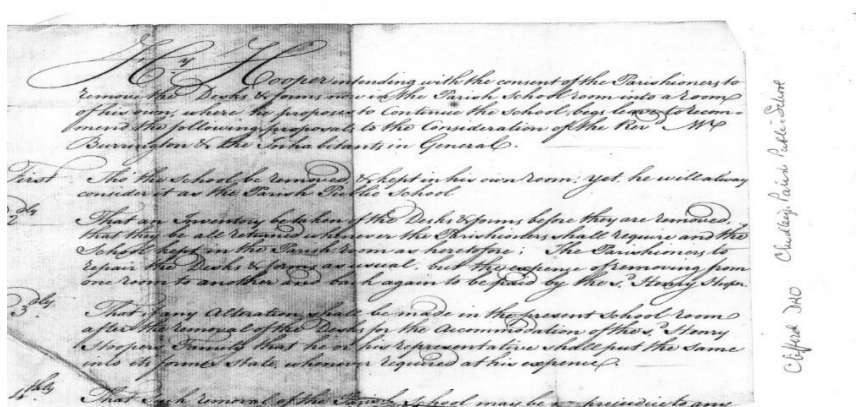 Hy Hooper intending with the consent of the Parishioners to
remove the Desks & forms now in the Parish School room into a room
of his own, where he proposes to Continue the School, begs leave to recom=
mend the following proposals to the Consideration of the Revd Mr
Burrington & the Inhabitants in General.
First Tho' the School be removed, & kept in his own room; yet, he will alway
consider it as the Parish Public School
2dly That an Inventory be taken of the Desks & forms before they are removed,
that they be all returned whenever the Parishioners shall require and the
School kept in the Parish room as heretofore; The Parishioners to
repair the Desks & forms as usual, but the expense of removing from
one room to another and back again to be paid by the sd. Henry Hooper.
3dly That if any Alteration shall be made in the present School room
after the removal of the Desks for the Accommodation of the sd. Henry
Hoopers Family that he or his representative shall put the same
into its former State, whenever required at his expence.
4thly That such removal of the Parish School may be a prejudice to any
Clifford DRO Chudleigh Parish Public School